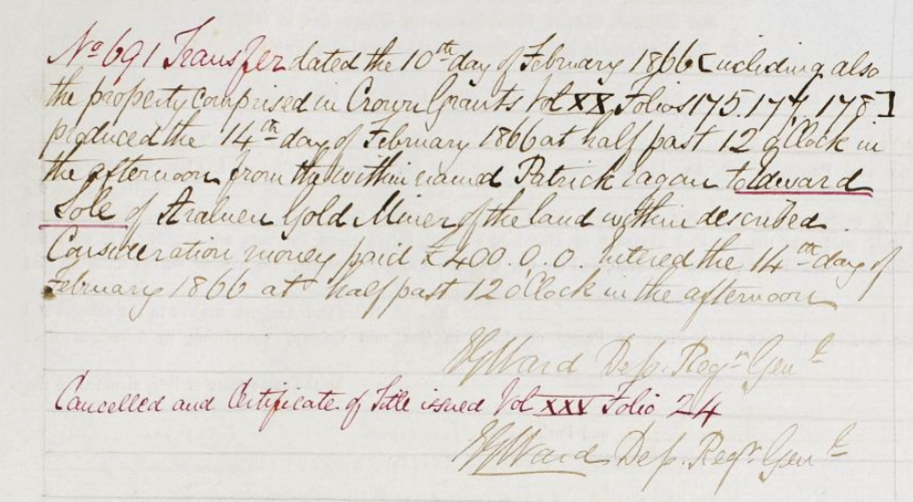 No 691 Transfer dated the 10th day of February 1866 [including also
the property comprised in Crown Grants Vol XX Folios 175. 177. 178]
produced the 14th day of February 1866 at half past 12 o'Clock in
the afternoon from the within named Patrick Eagan to Edward
Sole of Araluen Gold Miner of the land within described.
Consideration money paid £400.0.0. Entered the 14th day of
February 1866 at half past 12 o'Clock in the afternoon
Ward Dep. Regr Genl
Cancelled and Certificate of Title issued Vol XXV Folio 24
Ward Dep. Regr Genl